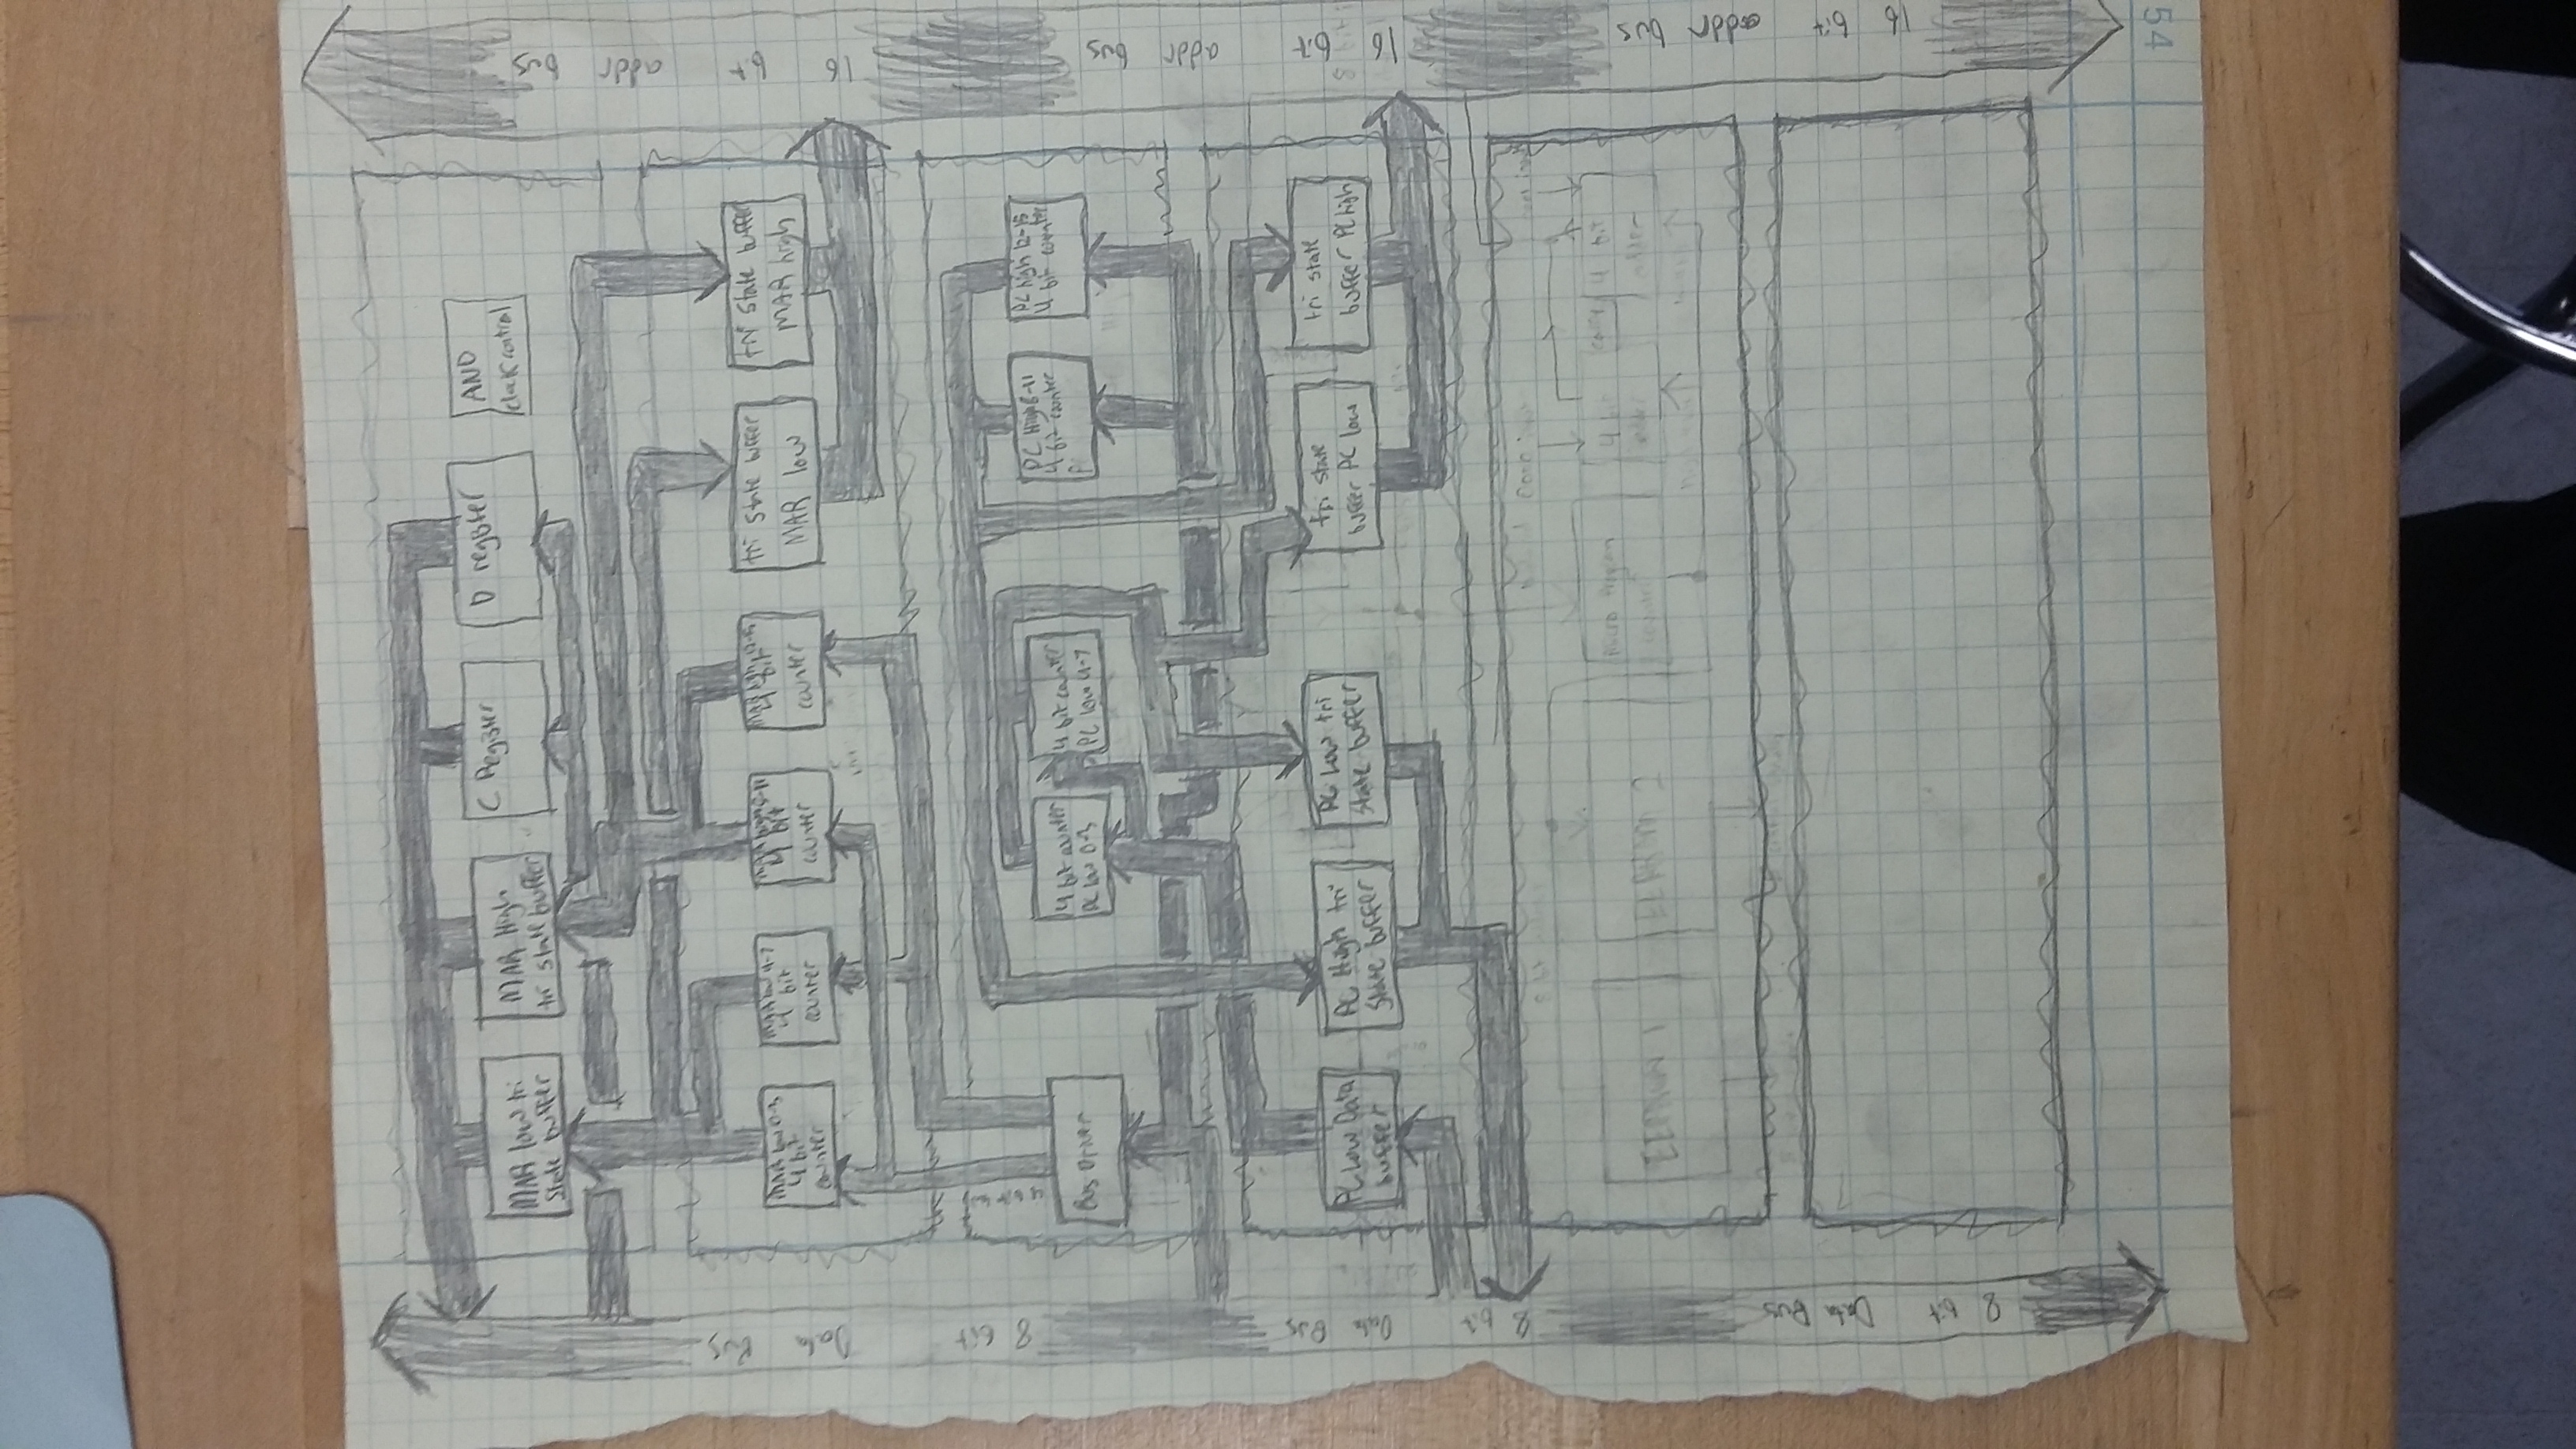 MAR low tri
state buffer
MAR High
tri state buffer
C Register
D register
AND
clock control
MAR low 0-3
4 bit
counter
MAR low 4-7
4 bit
counter
4 bit
counter
4 bit
counter
tri state buffer
MAR low
tri state buffer
MAR high
Bus Driver
4 bit counter
PC low 0-3
4 bit counter
PC low 4-7
PC High 8-11
4 bit counter
PC high 12-15
4 bit counter
PC Low Data
buffer
PC High tri
state buffer
PC Low tri
state buffer
tri state
buffer PC low
tri state
buffer PC high
EEPROM 1
EEPROM 2
micro Program
counter
4 bit
adder
carry
4 bit
adder
8 bit Data Bus 8 bit Data Bus 8 bit Data Bus
16 bit addr bus 16 bit addr bus 16 bit addr bus
54